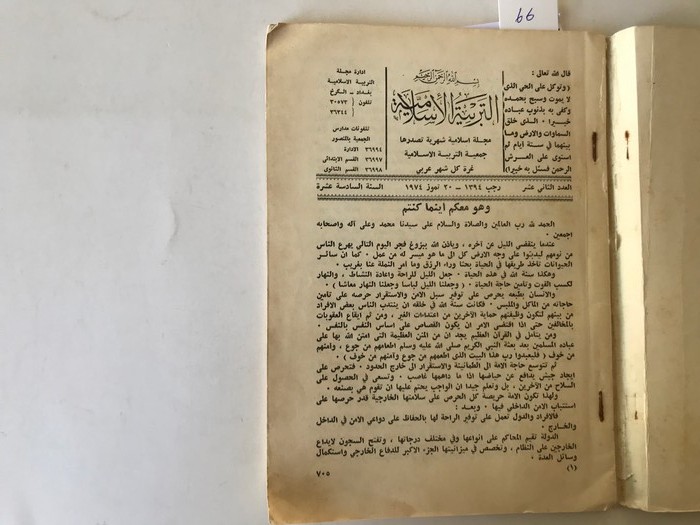 66
قال الله تعالى :
( وتوكل على الحي الذي
لا يموت وسبح بحمده
وكفى به بذنوب عباده
خبيرا * الذي خلق
السماوات والارض وما
بينهما في ستة أيام ثم
استوى على العرش
الرحمن فسئل به خبيرا )
بسم الله الرحمن الرحيم
التربية الاسلامية
مجلة اسلامية شهرية تصدرها
جمعية التربية الاسلامية
غرة كل شهر عربي
ادارة مجلة
التربية الاسلامية
بغداد - الكرخ
تلفون ( ٣٠٥٧٣
٣٦٣٤٤ )
تلفونات مدارس
الجمعية بالمنصور
٣٦٩٩٤ الادارة
٣٦٩٩٧ القسم الابتدائي
٣٦٩٩٨ القسم الثانوي
العدد الثاني عشر
رجب ١٣٩٤ - ٢٠ تموز ١٩٧٤
السنة السادسة عشرة
وهو معكم اينما كنتم
الحمد لله رب العالمين والصلاة والسلام على سيدنا محمد وعلى آله واصحابه
اجمعين ٠
عندما ينقضي الليل عن آخره ، وياذن الله ببزوغ فجر اليوم التالي يهرع الناس
من نومهم ليدبوا على وجه الارض كل الى ما هو ميسر له من عمل ٠ كما ان سائر
الحيوانات تاخذ طريقها في الحياة بحثا وراء الرزق وما امر النملة عنا بغريب ٠
وهكذا سنة الله في هذه الحياة ٠ جعل الليل للراحة واعادة النشاط ، والنهار
لكسب القوت وتامين حاجة الحياة ( وجعلنا الليل لباسا وجعلنا النهار معاشا ) ٠
والانسان بطبعه يحرص على توفير سبل الامن والاستقرار حرصه على تامين
حاجاته من الماكل والملبس ٠ فكانت سنة الله في خلقه ان ينتدب الناس بعض الافراد
من بينهم لتكون وظيفتهم حماية الآخرين من اعتداءات الغير ، ومن ثم ايقاع العقوبات
بالمخالفين حتى اذا اقتضى الامر ان يكون القصاص على اساس النفس بالنفس ٠
ومن يتامل في القرآن العظيم يجد ان من المنن العظيمة التي امتن الله بها على
عباده المسلمين بعد بعثة النبي الكريم صلى الله عليه وسلم اطعامهم من جوع ، وآمنهم
من خوف ( فليعبدوا رب هذا البيت الذي اطعمهم من جوع وآمنهم من خوف ) ٠
ثم تتوسع حاجة الامة الى الطمانينة والاستقرار الى خارج الحدود ٠ فتحرص على
ايجاد جيش يدافع عن حياضها اذا ما داهمها غاصب ٠ وتسعى في الحصول على
السلاح من الآخرين ، بل وتعلم جيدا ان الواجب يحتم عليها ان تقوم هي بصنعه ٠
ولهذا تكون الامة حريصة كل الحرص على سلامتها الخارجية قدر حرصها على
استتباب الامن الداخلي فيها ٠ وبعد :
فالافراد والدول تعمل على توفير الراحة لها بالحفاظ على دواعي الامن في الداخل
والخارج ٠
الدولة تقيم المحاكم على انواعها وفي مختلف درجاتها ، وتفتح السجون لايداع
الخارجين على النظام ، وتخصص في ميزانيتها الجزء الاكبر للدفاع الخارجي واستكمال
وسائل العدة ٠
(١)
٧٠٥